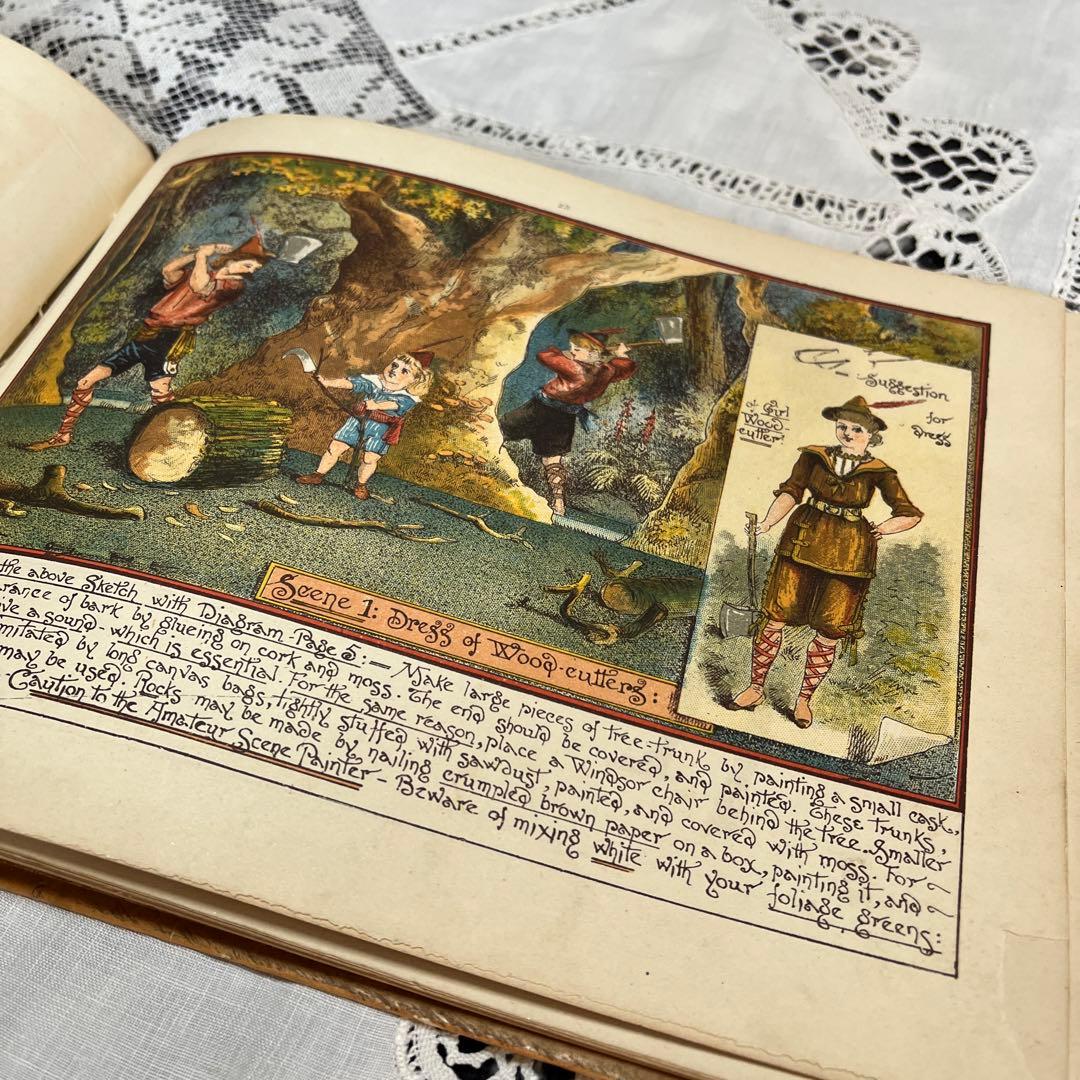 Suggestion
for
Dress
of Girl
Wood-
cutter
Scene 1: Dress of Wood-cutters:
the above Sketch with Diagram Page 5:— Make large pieces of tree-trunk by painting a small cask,
rance of bark by glueing on cork and moss. The end should be covered, and painted. These trunks,
ive a sound which is essential. For the same reason, place a Windsor chair behind the tree. Smaller
mitated by long canvas bags, tightly stuffed with sawdust, painted, and covered with moss. For
may be used. Rocks may be made by nailing crumpled brown paper on a box, painting it, and
Caution to the Amateur Scene Painter – Beware of mixing white with your foliage greens: